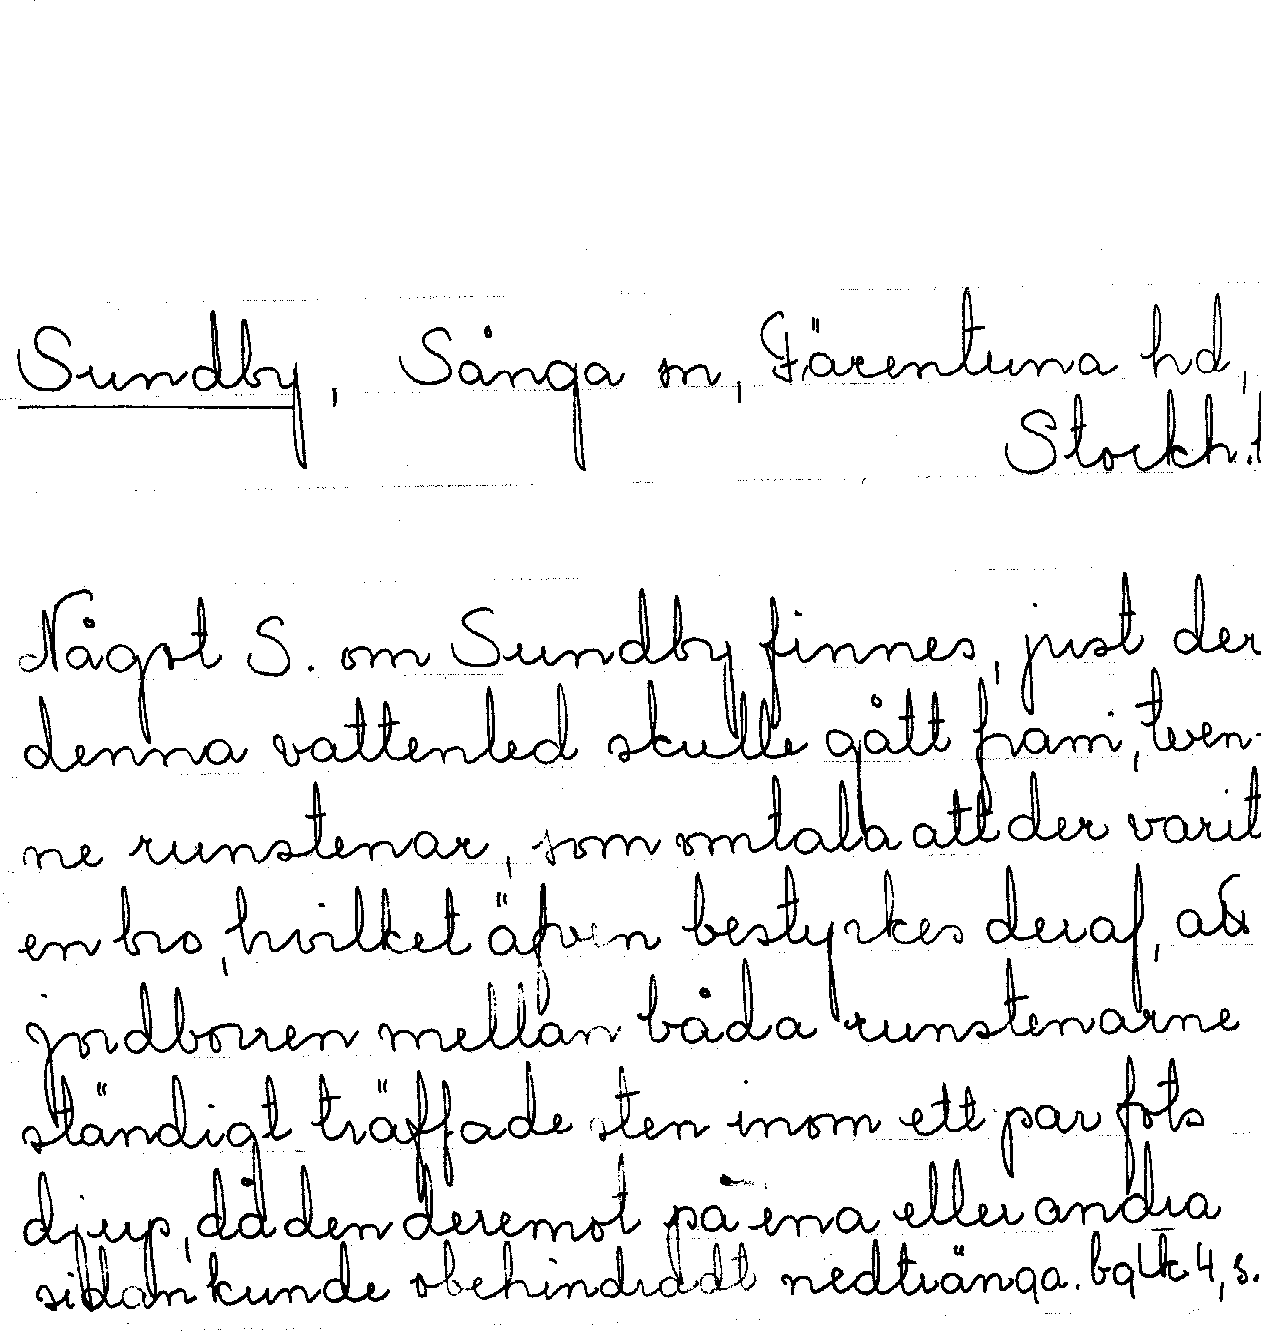 Sundby, Sånga sn, Färentuna hd,
Stockh.l
Något S. om Sundby finnes, just der
denna vattenled skulle gått fram, tven-
ne runstenar, som omtala att der varit
en bro, hvilket äfven bestyrkes deraf, att
jordborren mellan båda runstenarne
ständigt träffade sten inom ett par fots
djup, då den deremot på ena eller andra
sidan kunde obehindradt nedtränga. 4, s.